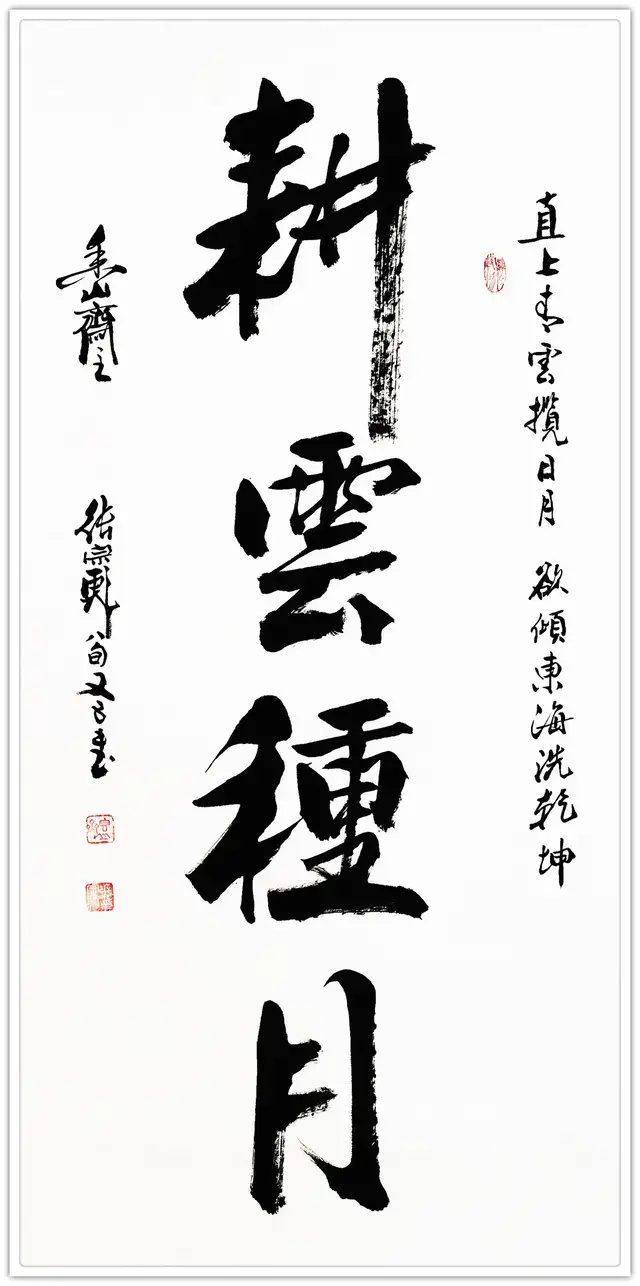 直上青雲攬日月 欲傾東海洗乾坤
耕雲種月
山齋主
宗 八旬又書